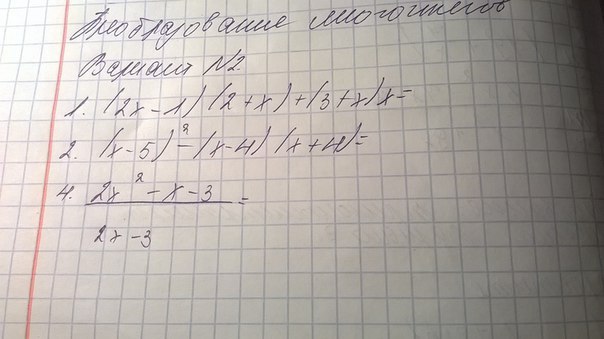 Преобразование многочленов
Вариант №2
1. (2x-1)(2+x)+(3+x)x=
2. (x-5)²-(x-4)(x+4)=
4. 2x²-x-3 =
2x-3